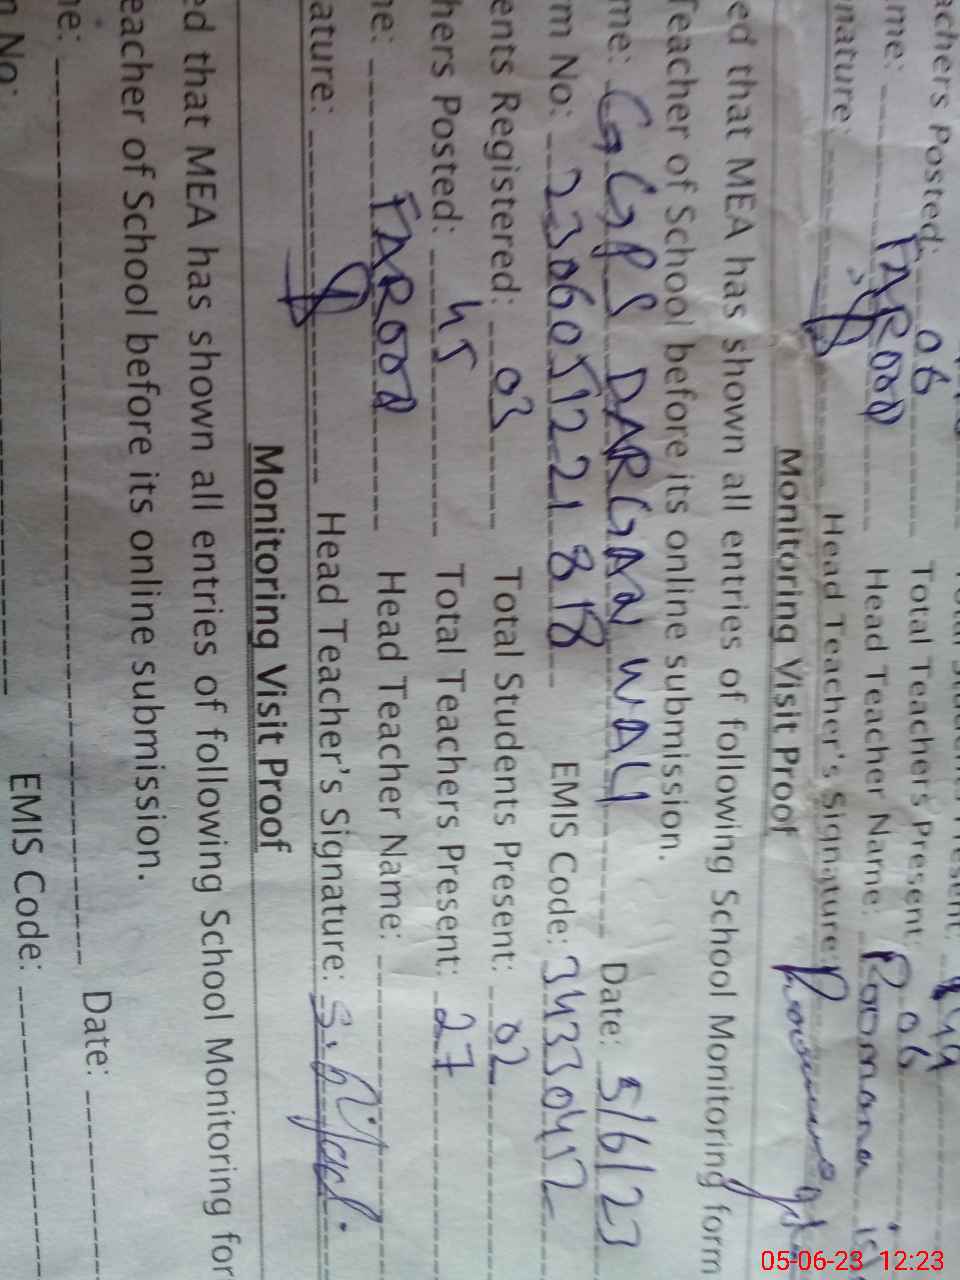 achers Posted: 06 Total Teachers Present: 06
me: FAROOQ Head Teacher Name: Roomana
nature: Head Teacher's Signature:
Monitoring Visit Proof
ed that MEA has shown all entries of following School Monitoring form
Teacher of School before its online submission.
me: GGPS DARGAN WALI Date: 5/6/23
m No: 2306051221818 EMIS Code: 34330452
ents Registered: 03 Total Students Present: 02
hers Posted: 45 Total Teachers Present: 27
ne: FAROOQ Head Teacher Name:
ature: Head Teacher's Signature:
Monitoring Visit Proof
ed that MEA has shown all entries of following School Monitoring for
eacher of School before its online submission.
ne: Date:
n No: EMIS Code:
05-06-23 12:23